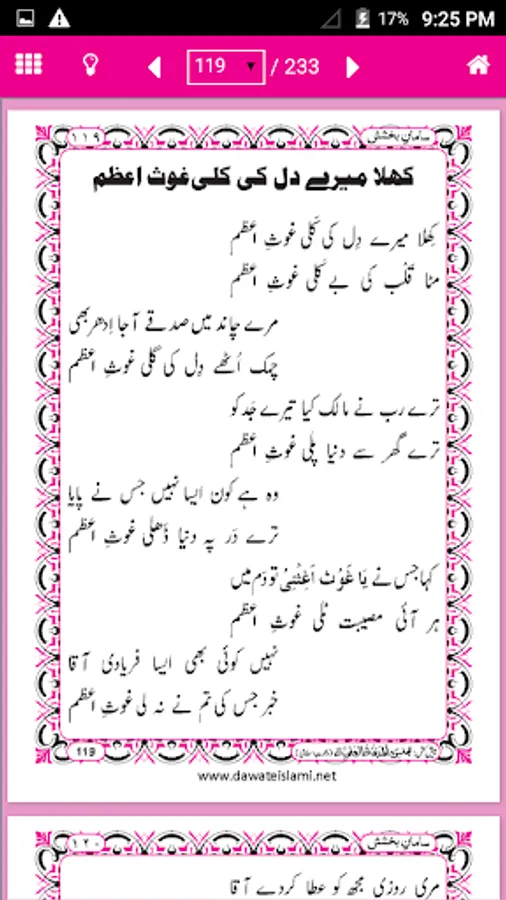 17% 9:25 PM
119 / 233
سامانِ بخشش ۱۱۹
کھلا میرے دل کی کلی غوث اعظم
کِھلا میرے دِل کی کَلی غوثِ اعظم
مٹا قَلْب کی بے کَلی غوثِ اعظم
مرے چاند میں صدقے آجا اِدھر بھی
چمک اُٹھے دِل کی گلی غوثِ اعظم
ترے رب نے مالک کیا تیرے جَد کو
ترے گھر سے دنیا پلی غوثِ اعظم
وہ ہے کون ایسا نہیں جس نے پایا
ترے دَر پہ دنیا ڈھلی غوثِ اعظم
کہا جس نے یَا غَوْث اَغِثْنِیْ تو دَم میں
ہر آئی مصیبت ٹلی غوثِ اعظم
نہیں کوئی بھی ایسا فریادی آقا
خبر جس کی تم نے نہ لی غوثِ اعظم
119
www.dawateislami.net
سامانِ بخشش ۱۲۰
مری روزی مجھ کو عطا کردے آقا